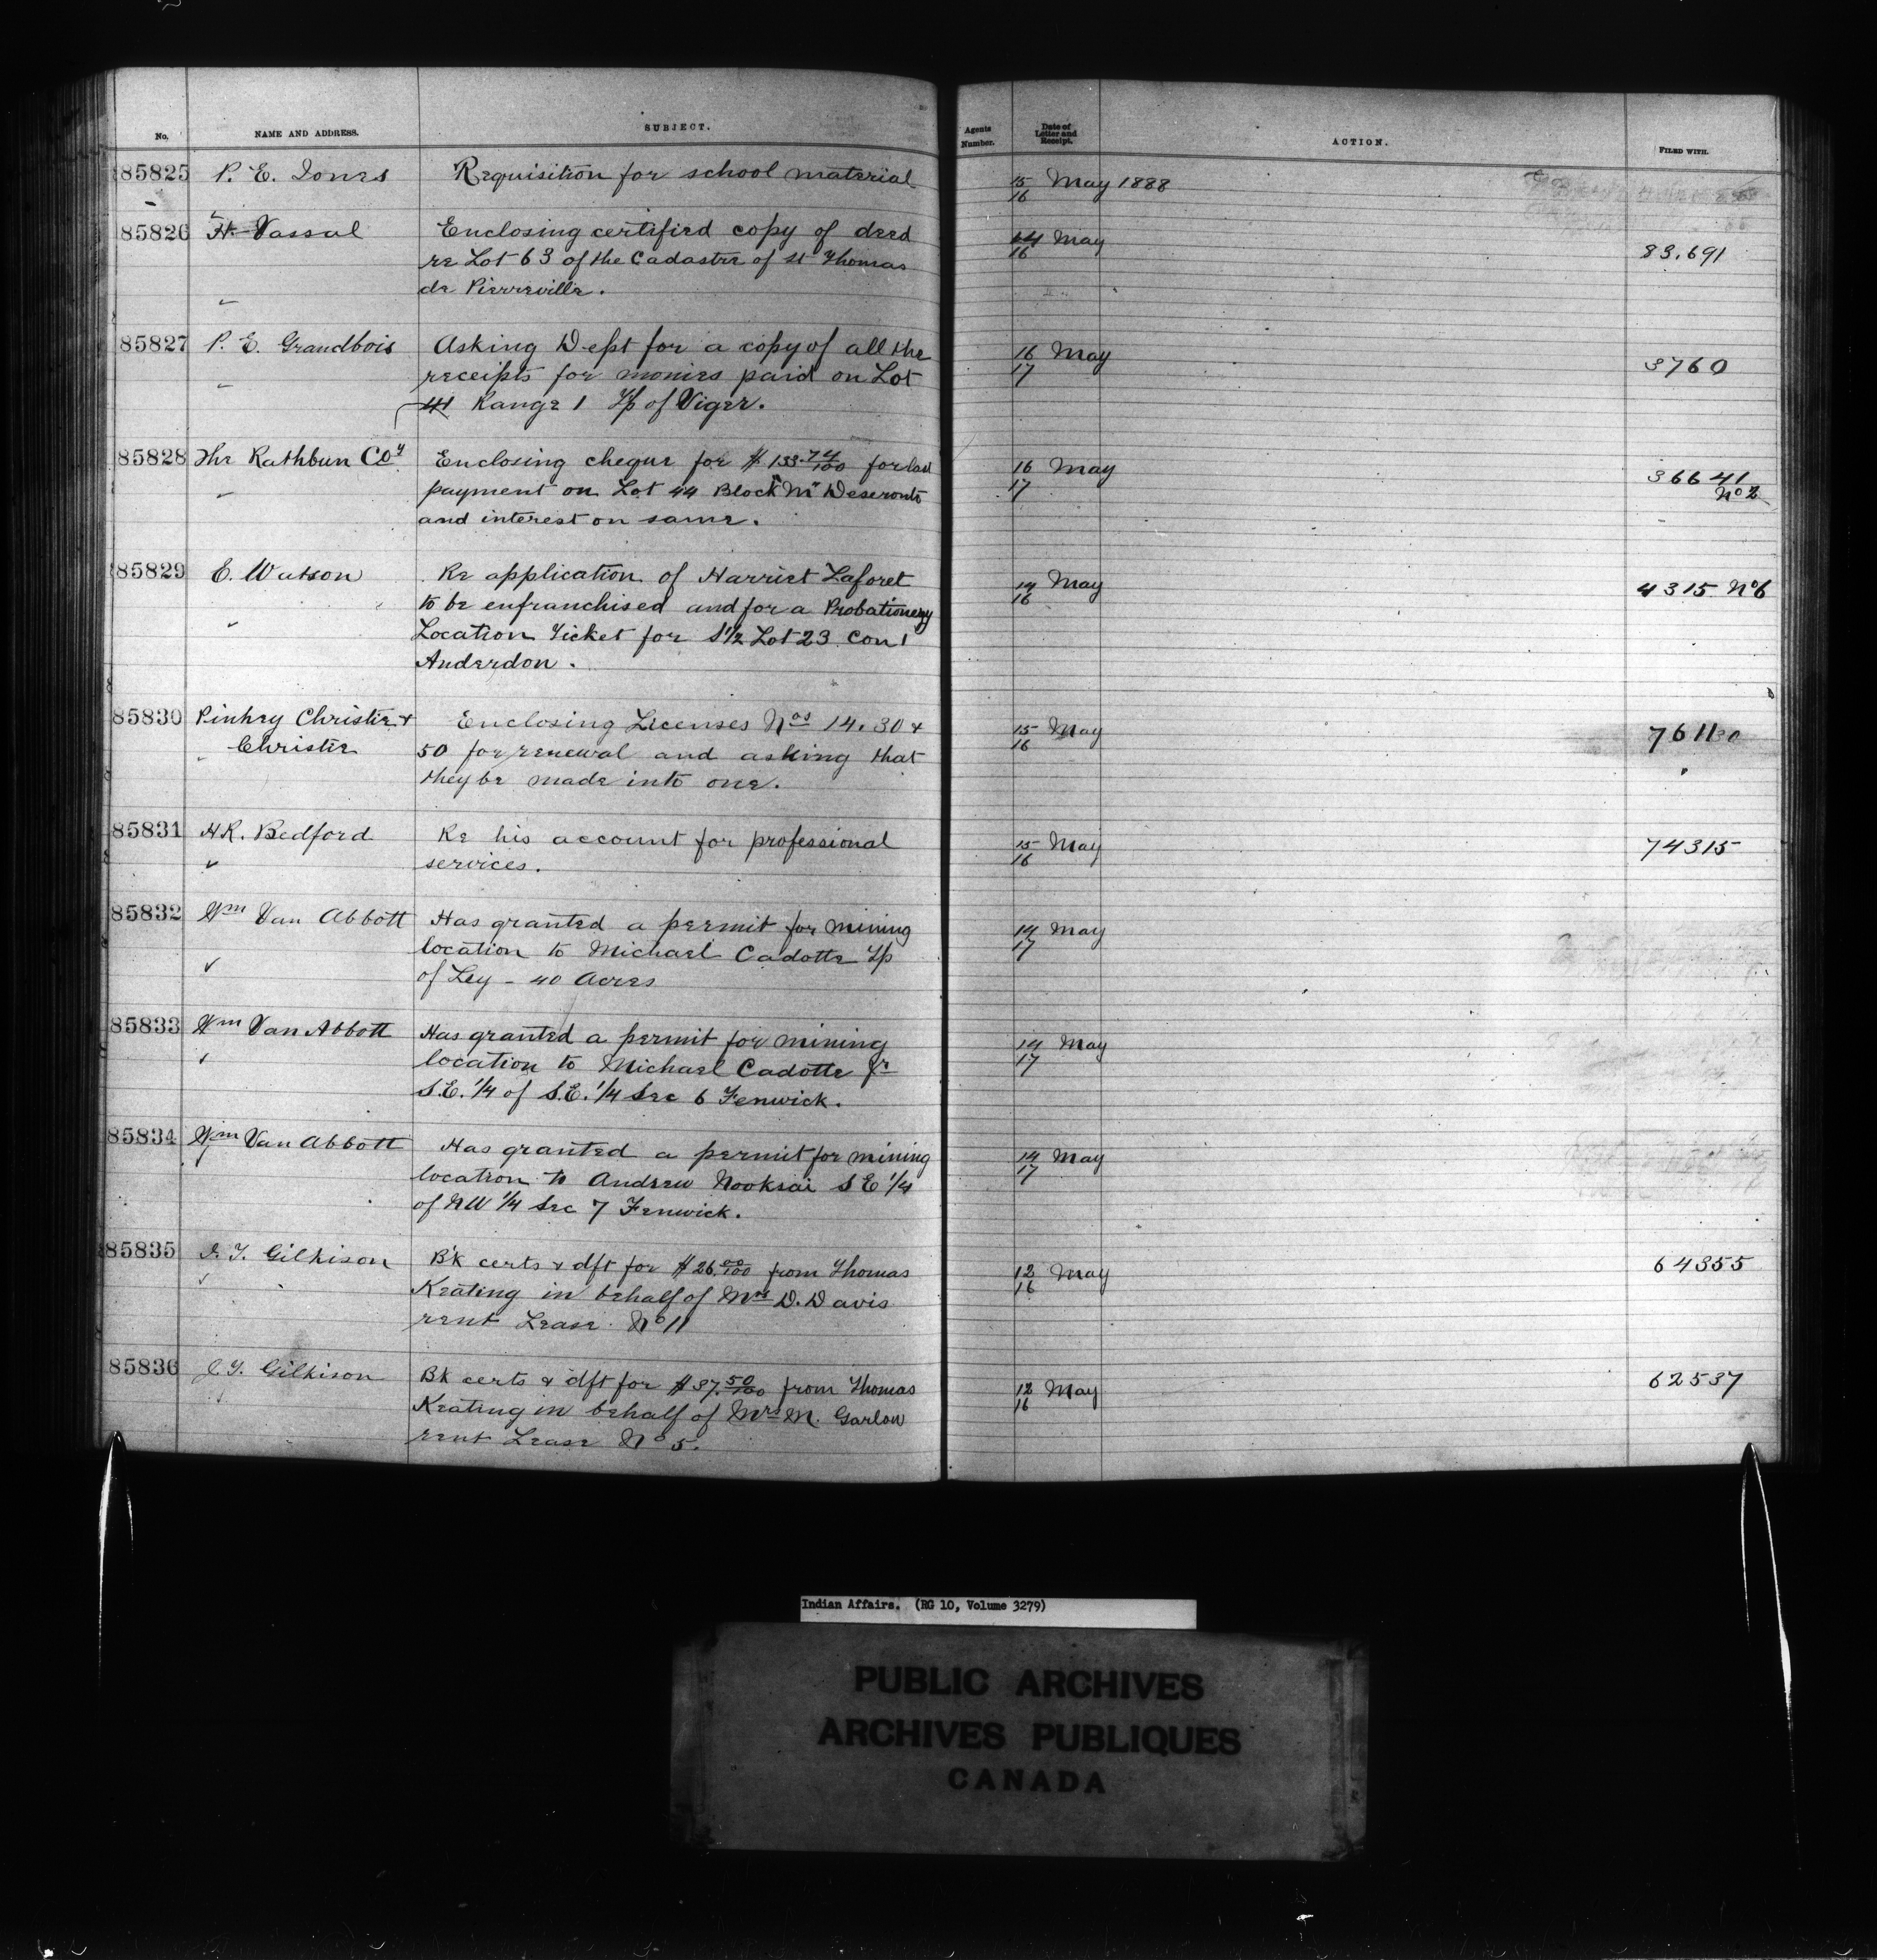 No. NAME AND ADDRESS. SUBJECT. Agents Number. Date of Letter and Receipt. ACTION. FILED WITH.
85825 P. E. Jones Requisition for school material 15/16 May 1888
85826 H. Vassal Enclosing certified copy of deed 14/16 May 83.691
re Lot 63 of the Cadastre of St Thomas
de Pierreville.
85827 P. E. Grandbois Asking Dept for a copy of all the 16/17 May 3760
receipts for monies paid on Lot
41 Range 1 Tp of Viger.
85828 The Rathbun Coy Enclosing cheque for $133.74/100 for last 16/17 May 36641
payment on Lot 44 Block "M" Deseronto No 2
and interest on same.
85829 E. Watson Re application of Harriet Laforet 14/16 May 4315 No 6
to be enfranchised and for a Probationery
Location Ticket for S1/2 Lot 23 Con 1
Anderdon.
85830 Pinhey Christie & Enclosing Licenses Nos 14. 30 & 15/16 May
Christie 50 for renewal and asking that
they be made into one.
85831 H.R. Bedford Re his account for professional 15/16 May 74315
services.
85832 Wm Van Abbott Has granted a permit for mining 14/17 May
location to Michael Cadotte Tp
of Ley - 40 Acres
85833 Wm Van Abbott Has granted a permit for mining 14/17 May
location to Michael Cadotte Jr
S.E. 1/4 of S.E. 1/4 Sec 6 Fenwick.
85834 Wm Van Abbott Has granted a permit for mining 14/17 May
location to Andrew Nooksai S E 1/4
of NW 1/4 Sec 7 Fenwick.
85835 J. T. Gilkison B'k certs & dft for $26.00/100 from Thomas 12/16 May 64355
Keating in behalf of Mrs D. Davis
rent Lease No 11
85836 J. T. Gilkison Bk certs & dft for $37.50/100 from Thomas 12/16 May 62537
Keating in behalf of Mrs M. Garlow
rent Lease No 5.
Indian Affairs. (RG 10, Volume 3279)
PUBLIC ARCHIVES
ARCHIVES PUBLIQUES
CANADA